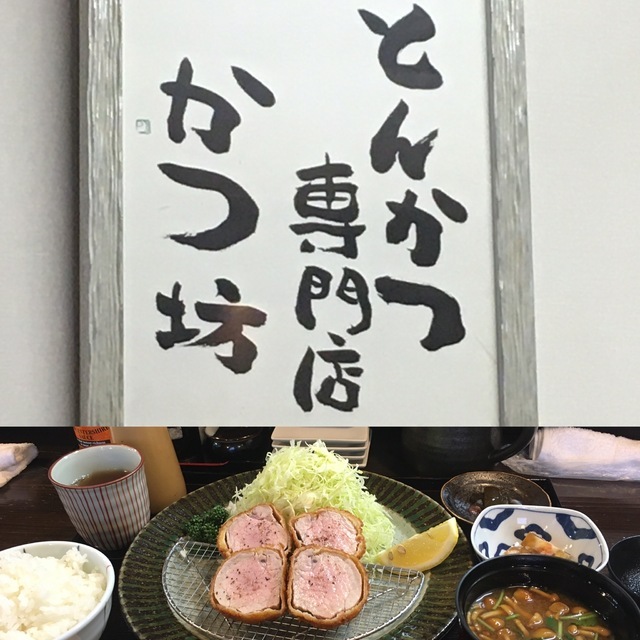 とんかつ
専門店
かつ坊